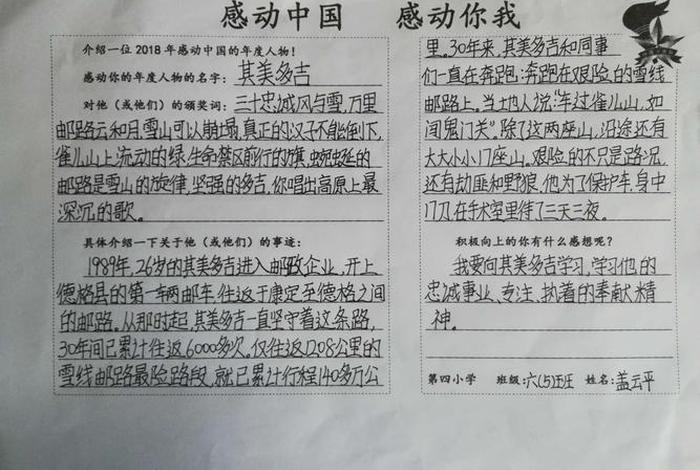 感动中国 感动你我
介绍一位2018年感动中国的年度人物！
感动你的年度人物的名字：其美多吉
对他（或他们）的颁奖词：三十忠诚风与雪，万里
邮路云和月，雪山可以崩塌，真正的汉子不能倒下，
雀儿山上流动的绿，生命禁区前行的旗，蜿蜒的
邮路是雪山的旋律，坚强的多吉，你唱出高原上最
深沉的歌。
具体介绍一下关于他（或他们）的事迹：
1989年，26岁的其美多吉进入邮政企业，开上
德格县的第一辆邮车，往返于康定至德格之间
的邮路。从那时起，其美多吉一直坚守着这条路，
30年间已累计往返6000多次。仅往返1208公里的
雪线邮路最险路段，就已累计行程140多万公
里。30年来，其美多吉和同事
们一直在奔跑；奔跑在艰险的雪线
邮路上，当地人说：“车过雀儿山，如
闯鬼门关”。除了这两座山，沿途还有
大大小小门座山。艰险的不只是路况，
还有劫匪和野狼。他为了保护车，身中
17刀，在手术室里待了三天三夜。
积极向上的你有什么感想呢？
我要向其美多吉学习，学习他的
忠诚事业、专注、执着的奉献精
神。
第四小学 班级：六(5)班 姓名：盖云平